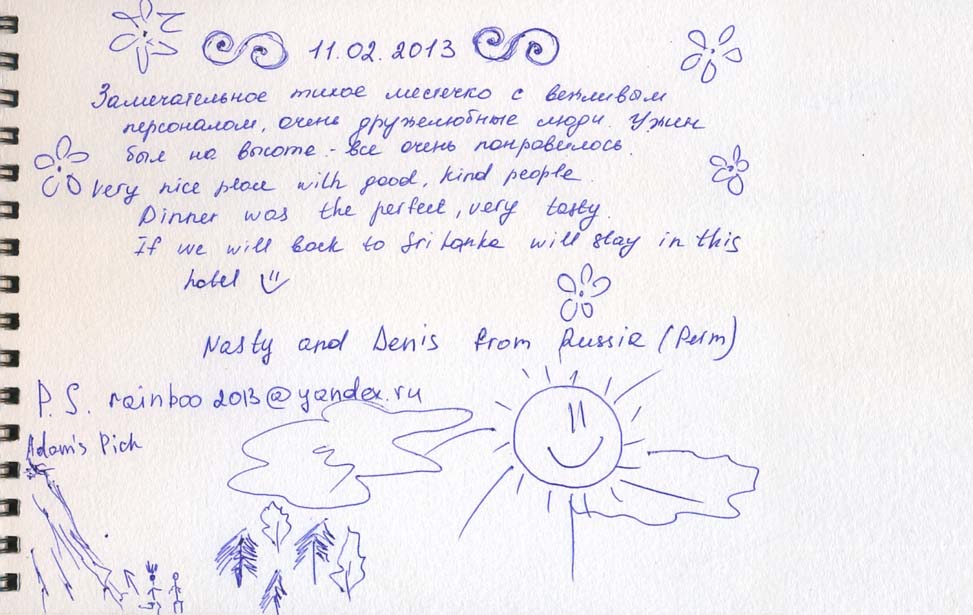 11.02.2013
Замечательное тихое местечко с вежливым
персоналом, очень дружелюбные люди. Ужин
был на высоте - все очень понравилось.
Very nice place with good, kind people.
Dinner was the perfect, very tasty.
If we will back to Sri Lanka will stay in this
hotel
Nasty and Denis from Russia (Perm)
P.S. rainboo2013@yandex.ru
Adam's Pick